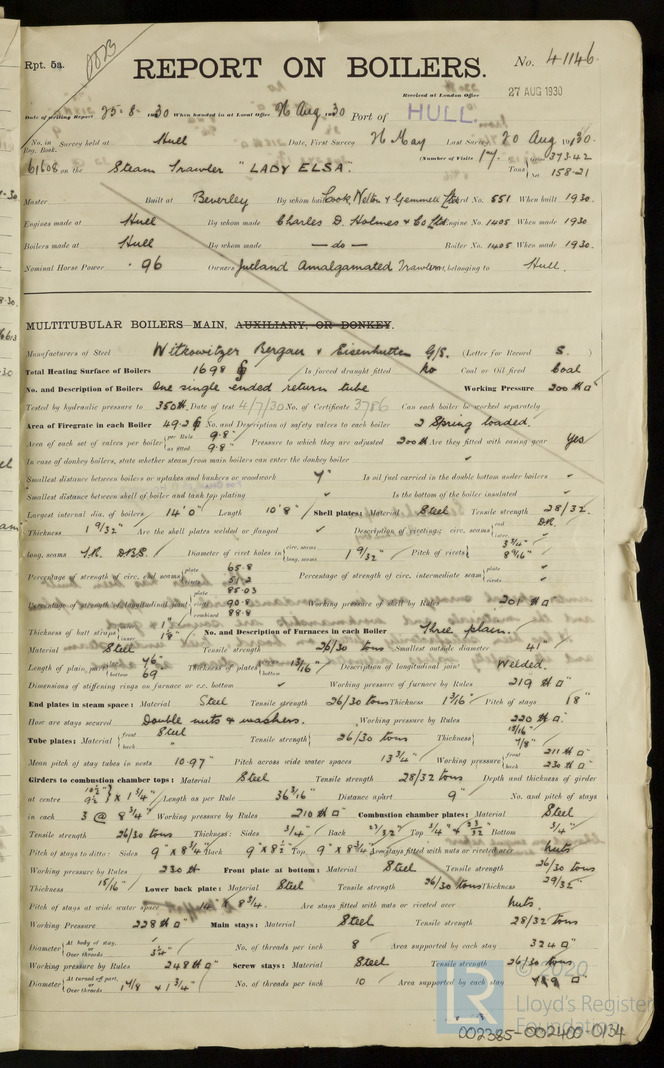 Rpt. 5a.
REPORT ON BOILERS.
No. 41146
Received at London Office
27 AUG 1930
Date of writing Report 25·8·1930 When handed in at Local Office 26 Aug 1930 Port of HULL.
No. in Reg. Book. Survey held at Hull Date, First Survey 26 May Last Survey 20 Aug 1930.
61608 on the Steam Trawler "LADY ELSA" (Number of Visits 17.) Tons Gross 373.42 Net 158.21
Master Built at Beverley By whom built Cook, Welton & Gemmell Ltd Yard No. 551 When built 1930.
Engines made at Hull By whom made Charles D. Holmes & Co Ltd Engine No. 1405 When made 1930
Boilers made at Hull By whom made — do — Boiler No. 1405 When made 1930.
Nominal Horse Power 96 Owners Jutland Amalgamated Trawlers, belonging to Hull.
MULTITUBULAR BOILERS MAIN, AUXILIARY, OR DONKEY.
Manufacturers of Steel Witkowitzer Bergau & Eisenhutten G/S. (Letter for Record S.)
Total Heating Surface of Boilers 1698 Is forced draught fitted No Coal or Oil fired Coal
No. and Description of Boilers One single ended return tube Working Pressure 200 lb □"
Tested by hydraulic pressure to 350 lb Date of test 4/7/30 No. of Certificate 3786 Can each boiler be worked separately
Area of Firegrate in each Boiler 49.2 No. and Description of safety valves to each boiler 2 Spring loaded.
Area of each set of valves per boiler per Rule 9.8" as fitted 9.8" Pressure to which they are adjusted 200 lb Are they fitted with easing gear Yes
In case of donkey boilers, state whether steam from main boilers can enter the donkey boiler ✓
Smallest distance between boilers or uptakes and bunkers or woodwork Is oil fuel carried in the double bottom under boilers ✓
Smallest distance between shell of boiler and tank top plating ✓ Is the bottom of the boiler insulated ✓
Largest internal dia. of boilers 14' 0" Length 10' 8" Shell plates: Material Steel Tensile strength 28/32.
Thickness 1 9/32" Are the shell plates welded or flanged ✓ Description of riveting: circ. seams end D.R. inter ✓
long. seams T.R. D.B.S. Diameter of rivet holes in circ. seams long. seams 1 9/32" Pitch of rivets 3 3/4" 8 9/16"
Percentage of strength of circ. end seams plate 65.8 rivets 51.2 Percentage of strength of circ. intermediate seam plate ✓ rivets ✓
Percentage of strength of longitudinal joint plate 85.03 rivets 90.8 combined 88.8 Working pressure of shell by Rules 201 lb □"
Thickness of butt straps outer 1" inner 1 1/8" No. and Description of Furnaces in each Boiler Three plain.
Material Steel Tensile strength 26/30 tons Smallest outside diameter 41"
Length of plain part top 46" bottom 69 Thickness of plates crown bottom 13/16" Description of longitudinal joint Welded.
Dimensions of stiffening rings on furnace or c.c. bottom ✓ Working pressure of furnace by Rules 219 lb □"
End plates in steam space: Material Steel Tensile strength 26/30 tons Thickness 1 3/16" Pitch of stays 18"
How are stays secured Double nuts & washers. Working pressure by Rules 220 lb □"
Tube plates: Material front Steel back " Tensile strength 26/30 tons Thickness 15/16" 7/8"
Mean pitch of stay tubes in nests 10.97 Pitch across wide water spaces 13 3/4" Working pressure front 211 lb □" back 230 lb □"
Girders to combustion chamber tops: Material Steel Tensile strength 28/32 tons Depth and thickness of girder
at centre 10 1/2" 9 1/2" x 1 3/4" Length as per Rule 36 3/16" Distance apart 9" No. and pitch of stays
in each 3 @ 8 3/4" Working pressure by Rules 210 lb □" Combustion chamber plates: Material Steel
Tensile strength 26/30 tons Thickness: Sides 3/4" Back 23/32" Top 3/4" & 23/32 Bottom 3/4"
Pitch of stays to ditto: Sides 9" x 8 3/4" Back 9" x 8 1/2" Top 9" x 8 3/4" Are stays fitted with nuts or riveted over nuts
Working pressure by Rules 230 lb Front plate at bottom: Material Steel Tensile strength 26/30 tons
Thickness 15/16" Lower back plate: Material Steel Tensile strength 26/30 tons Thickness 29/32"
Pitch of stays at wide water space 14" x 8 3/4. Are stays fitted with nuts or riveted over nuts.
Working Pressure 228 lb □" Main stays: Material Steel Tensile strength 28/32 tons
Diameter At body of stay, or Over threads 3 1/4" No. of threads per inch 8 Area supported by each stay 324 □"
Working pressure by Rules 248 lb □" Screw stays: Material Steel Tensile strength 26/30 tons
Diameter At turned off part, or Over threads 1 7/8 & 1 3/4" No. of threads per inch 10 Area supported by each stay
© 2020
Lloyd's Register
Foundation
002385-002400-0134